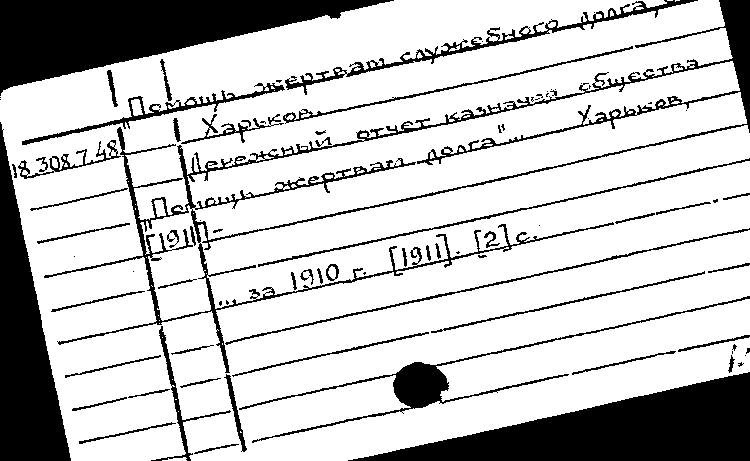 "Помощь жертвам служебного долга,
Харьков.
18.308.7.48
Денежный отчет казначея общества
"Помощь жертвам долга"... Харьков,
[1911]-
... за 1910 г. [1911]. [2] с.